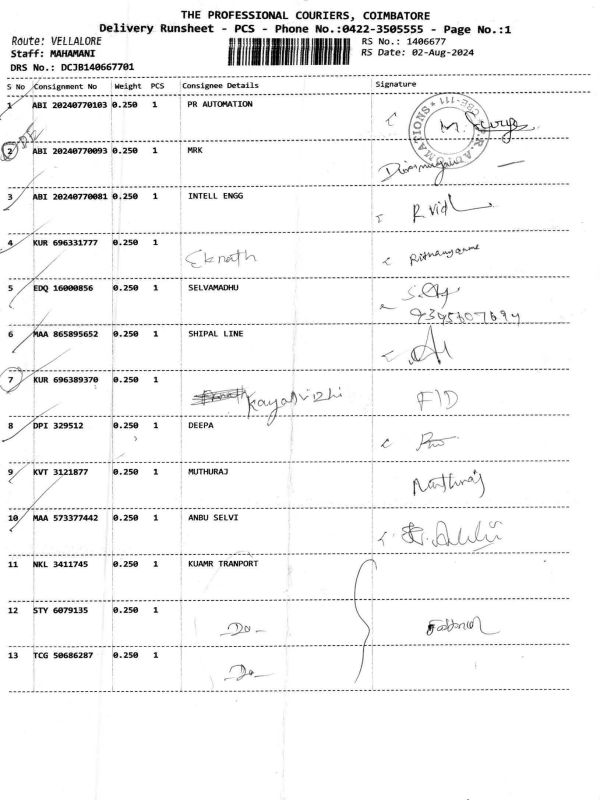 THE PROFESSIONAL COURIERS, COIMBATORE
Delivery Runsheet - PCS - Phone No.:0422-3505555 - Page No.:1
Route: VELLALORE
RS No.: 1406677
Staff: MAHAMANI
RS Date: 02-Aug-2024
DRS No.: DCJB140667701
S No Consignment No Weight PCS Consignee Details Signature
1 ABI 20240770103 0.250 1 PR AUTOMATION
2 ABI 20240770093 0.250 1 MRK
3 ABI 20240770081 0.250 1 INTELL ENGG R Vid
4 KUR 696331777 0.250 1 Eknath
5 EDQ 16000856 0.250 1 SELVAMADHU
6 MAA 865895652 0.250 1 SHIPAL LINE
7 KUR 696389370 0.250 1 Kayalvizhi F/D
8 DPI 329512 0.250 1 DEEPA
9 KVT 3121877 0.250 1 MUTHURAJ Muthuraj
10 MAA 573377442 0.250 1 ANBU SELVI
11 NKL 3411745 0.250 1 KUAMR TRANPORT
12 STY 6079135 0.250 1 -Do-
13 TCG 50686287 0.250 1 -Do-